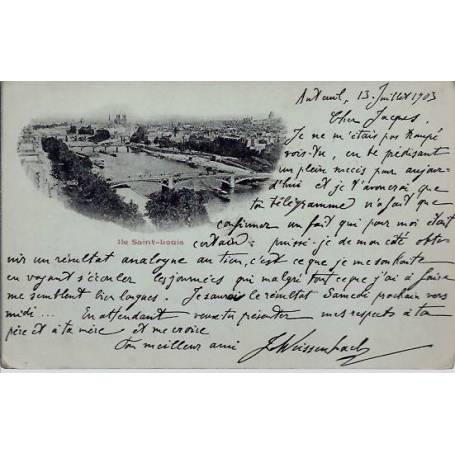 Auteuil, 13 Juillet 1903
Cher Jacques,
Je ne m'étais pas trompé
vois-tu, en te prédisant
un plein succès pour aujour-
d'hui et je t'avouerai que
ton télégramme n'a fait que
confirmer un fait qui pour moi était
certain; puissé-je de mon côté obte-
nir un résultat analogue au tien, c'est ce que je me souhaite
en voyant s'écouler les journées qui malgré tout ce que j'ai à faire
me semblent bien longues. Je saurai le résultat Samedi prochain vers
midi... En attendant veux-tu présenter mes respects à ton
père et à ta mère et me croire
Ton meilleur ami J. Weissenbach
Ile Saint-Louis